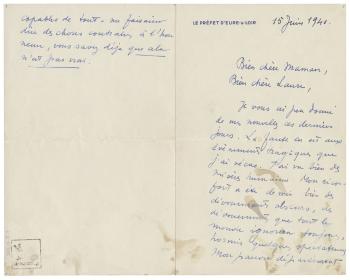 capables de tout - me faisaient
dire des choses contraires à l'hon
neur, vous savez déjà que cela
n'est pas vrai.
LE PRÉFET D'EURE-&-LOIR
15 Juin 1940.
Bien chère Maman,
Bien chère Laure,
Je vous ai peu donné
de mes nouvelles ces derniers
jours. La faute en est aux
évènements tragiques que
j'ai vécus. J'ai vu bien des
misères humaines. Mon récon-
fort a été de voir bien des
dévouements obscurs, des
dévouements que tout le
monde ignorera toujours,
hormis quelques spectateurs.
Mon pauvre département